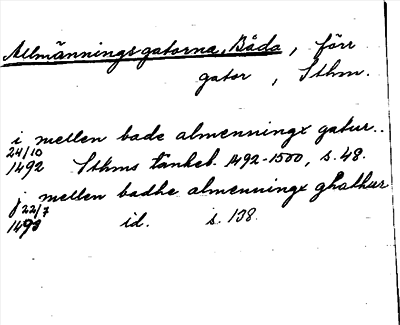 Allmänningsgatorna, Båda, förr
gator, Sthm.
i mellen bade almenningx gatur..
24/10
1492 Sthms tänkeb. 1492-1500, s. 48.
j mellen badhe almenningx ghathur
22/7
id. s. 138.